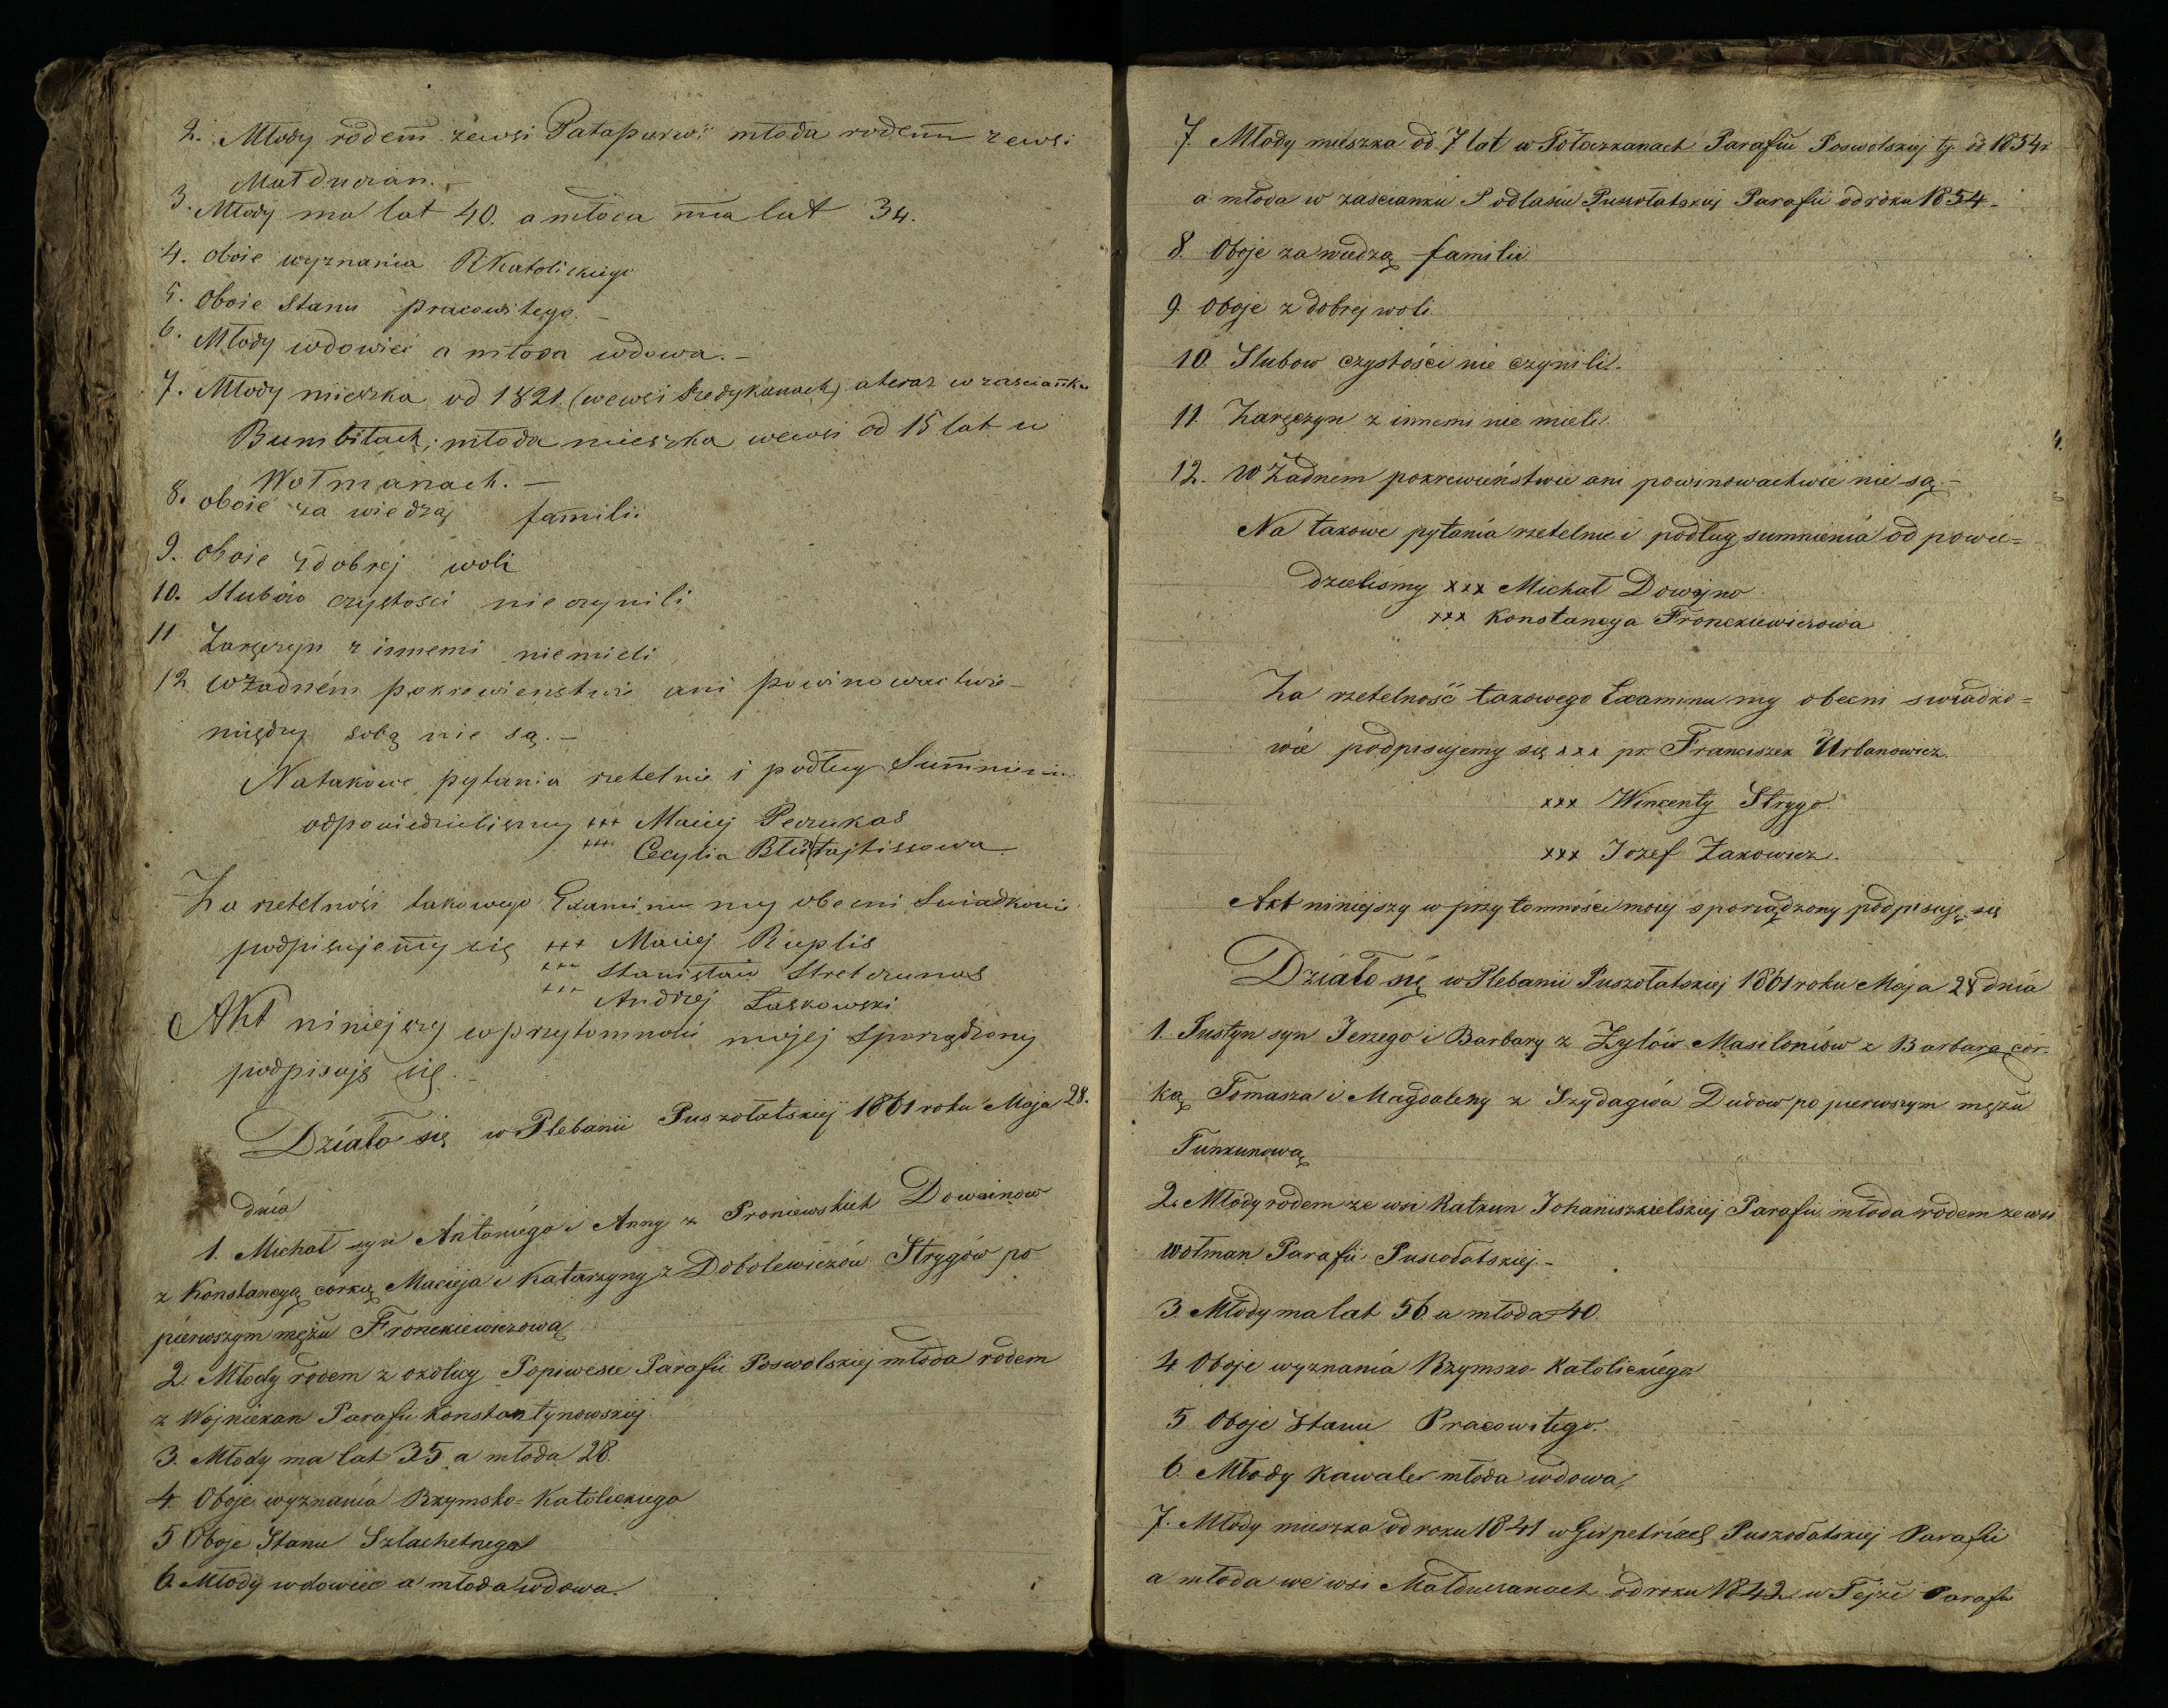 2. Młody rodem zewsi Patapurwii młoda rodem zewsi
Małduczan.
3. Młody ma lat 40. a młoda ma lat 34.
4. oboie wyznania RKatolickiego
5. Oboie Stanu pracowitego. –
6. Młody wdowiec a młoda wdowa. –
7. Młody mieszka od 1821. (wewsi Szedykanach) ateraz w zascianku
Bumbitach; młoda mieszka wewsi od 15 lat w
Wołmanach. –
8. oboie za wiedzą familii
9. oboie zdobrej woli
10. Slubów czystosci nie czynili
11 Zaręczyn z innemi niemieli
12 Wżadném pokrewienstwie ani powinowactwie
między sobą nie są. –
Natakowe pytania rzetelnie i podług Summieni
odpowiedzielismy +++ Maciej Peczukas
+++ Cecylia Blustajtissowa
Za rzetelność takowego Examinu my obecni Swiadkowie
podpisujemy się +++ Maciej Ruplis
+++ Stanisław Stretczunas
+++ Andrzej Łaskowski
Akt niniejszy wprzytomności mojej sporządzony
podpisuję się. –
Działo się w Plebanii Puszołatskiej 1861 roku Maja 28.
dnia
1. Michał syn Antoniego i Anny z Proniewskich Dowainow
z Konstancyą corką Macieja i Katarzyny z Dobolewiczów Strygów po
pierwszym mężu Fronckiewiczową
2. Młody rodem z okolicy Popiwesie Parafii Poswolskiej młoda rodem
z Wojniekan Parafii Konstantynowskiej.
3. Młody ma lat 35 a młoda 28.
4. Oboje wyznania Rzymsko-Katolickiego
5 Oboje Stanu Szlachetnego
6. Młody wdowiec a młoda wdowa.
7. Młody mieszka od 7 lat w Połoczkanach Parafii Poswolskiej tj. od 1854r
a młoda w zascianku Podlasiu Puszołatskiej Parafii od roku 1854. –
8. Oboje za wiedzą familii
9. Oboje z dobrej woli
10. Slubow czystości nie czynili.
11. Zaręczyn z innemi nie mieli.
12. W Żadnem pokrewieństwie ani powinowactwie nie są. –
Na takowe pytania rzetelnie i podług sumnienia odpowie=
dzielismy xxx Michał Dowojno
xxx Konstancya Fronckiewiczowa
Za rzetelność takowego Examinu my obecni swiadko=
wie podpisujemy się xxx pr Franciszek Urbanowicz.
xxx Wincenty Strygo.
xxx Jozef Żakowicz.
Akt niniejszy w przytomności mojej sporządzony podpisuję się
Działo się w Plebanii Puszołatskiej 1861 roku Maja 28 dnia
1. Justyn syn Jerzego i Barbary z Zylów Masiloniów z Barbarą cor.
ką Tomasza i Magdaleny z Szydagiów Dudow po pierwszym mężu
Tunkunową
2. Młody rodem ze wsi Katkun Johaniszkielskiej Parafii młoda rodem ze wsi
wołman Parafii Puszołatskiej. –
3. Młody ma lat 56 a młoda 40.
4 Oboje wyznania Rzymsko-Katolickiego
5 Oboje Stanu Pracowitego.
6. Młody kawaler młoda wdowa,
7. Młody mieszka od roku 1841 w Puszołatskiej Parafii
a młoda we wsi Małduczanach od roku 1842 w Tejże Parafii